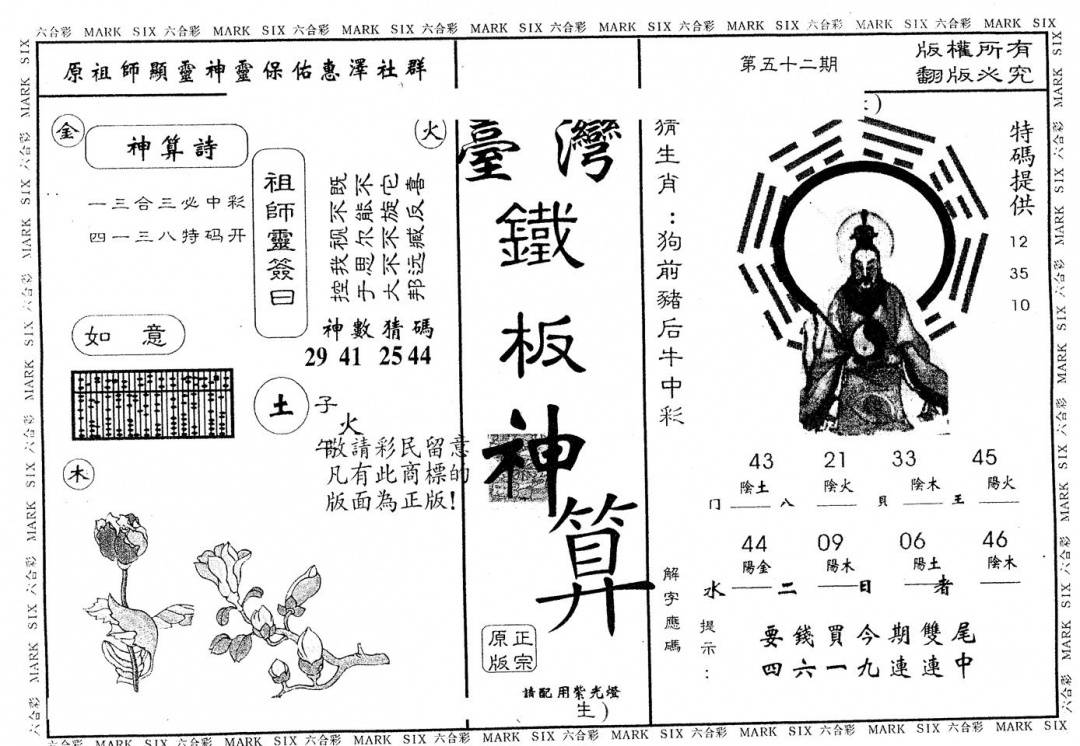 六合彩 MARK SIX 六合彩 MARK SIX 六合彩 MARK SIX 六合彩 MARK SIX 六合彩 MARK SIX 六合彩 MARK SIX 六合彩 MARK SIX 六合彩 MARK SIX
原祖師顯靈神靈保佑惠澤社群
第五十二期
版權所有
翻版必究
金
神算詩
一三合三必中彩
四一三八特码开
祖師靈簽曰
火
喜反臧远邦
仑旋不不大
不能尔思于
既不视我控
神數猜碼
29 41 25 44
如意
土
子
火
午
敬請彩民留意
凡有此商標的
版面為正版!
木
臺灣
鐵板神算
正宗
原版
請配用紫光燈
生)
猜生肖:狗前豬后牛中彩
特碼提供
12
35
10
43 21 33 45
陰土 陰火 陰木 陽火
门 八 貝 王
44 09 06 46
陽金 陽木 陽土 陰木
水 二 日 者
解字應碼
提示:
要錢買今期雙尾
四六一九連連中
六合彩 MARK SIX 六合彩 MARK SIX 六合彩 MARK SIX 六合彩 MARK SIX 六合彩 MARK SIX 六合彩 MARK SIX 六合彩 MARK SIX 六合彩 MARK SIX